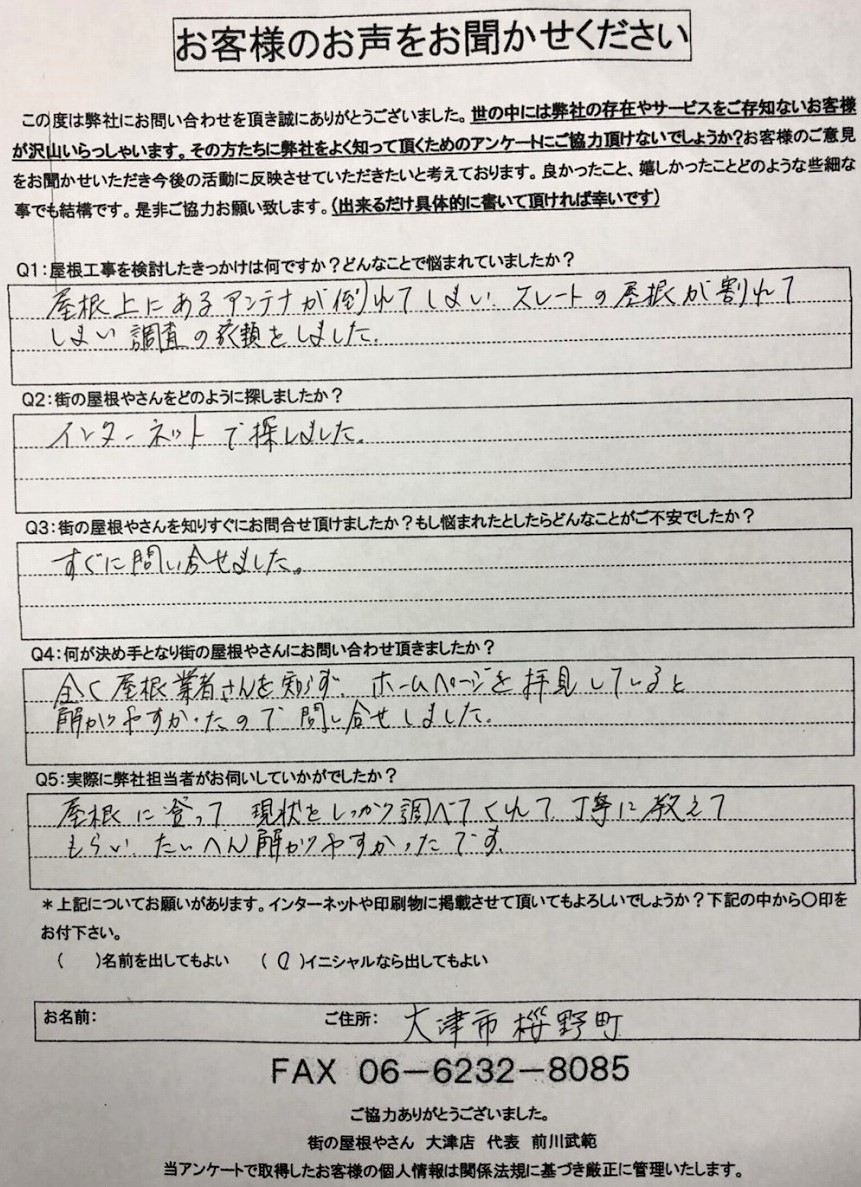 お客様のお声をお聞かせください
この度は弊社にお問い合わせを頂き誠にありがとうございました。世の中には弊社の存在やサービスをご存知ないお客様
が沢山いらっしゃいます。その方たちに弊社をよく知って頂くためのアンケートにご協力頂けないでしょうか?お客様のご意見
をお聞かせいただき今後の活動に反映させていただきたいと考えております。良かったこと、嬉しかったことどのような些細な
事でも結構です。是非ご協力お願い致します。(出来るだけ具体的に書いて頂ければ幸いです)
Q1:屋根工事を検討したきっかけは何ですか?どんなことで悩まれていましたか?
屋根上にあるアンテナが倒れてしまい、スレートの屋根が割れて
しまい調査の依頼をしました。
Q2:街の屋根やさんをどのように探しましたか?
インターネットで探しました。
Q3:街の屋根やさんを知りすぐにお問合せ頂けましたか?もし悩まれたとしたらどんなことがご不安でしたか?
すぐに問い合せました。
Q4:何が決め手となり街の屋根やさんにお問い合わせ頂きましたか?
全く屋根業者さんを知らず、ホームページを拝見していると
解かりやすかったので問い合せしました。
Q5:実際に弊社担当者がお伺いしていかがでしたか?
屋根に登って現状をしっかり調べてくれて、丁寧に教えて
もらい、たいへん解かりやすかったです。
*上記についてお願いがあります。インターネットや印刷物に掲載させて頂いてもよろしいでしょうか?下記の中から〇印を
お付下さい。
( )名前を出してもよい (〇)イニシャルなら出してもよい
お名前: ご住所: 大津市桜野町
FAX 06-6232-8085
ご協力ありがとうございました。
街の屋根やさん 大津店 代表 前川武範
当アンケートで取得したお客様の個人情報は関係法規に基づき厳正に管理いたします。